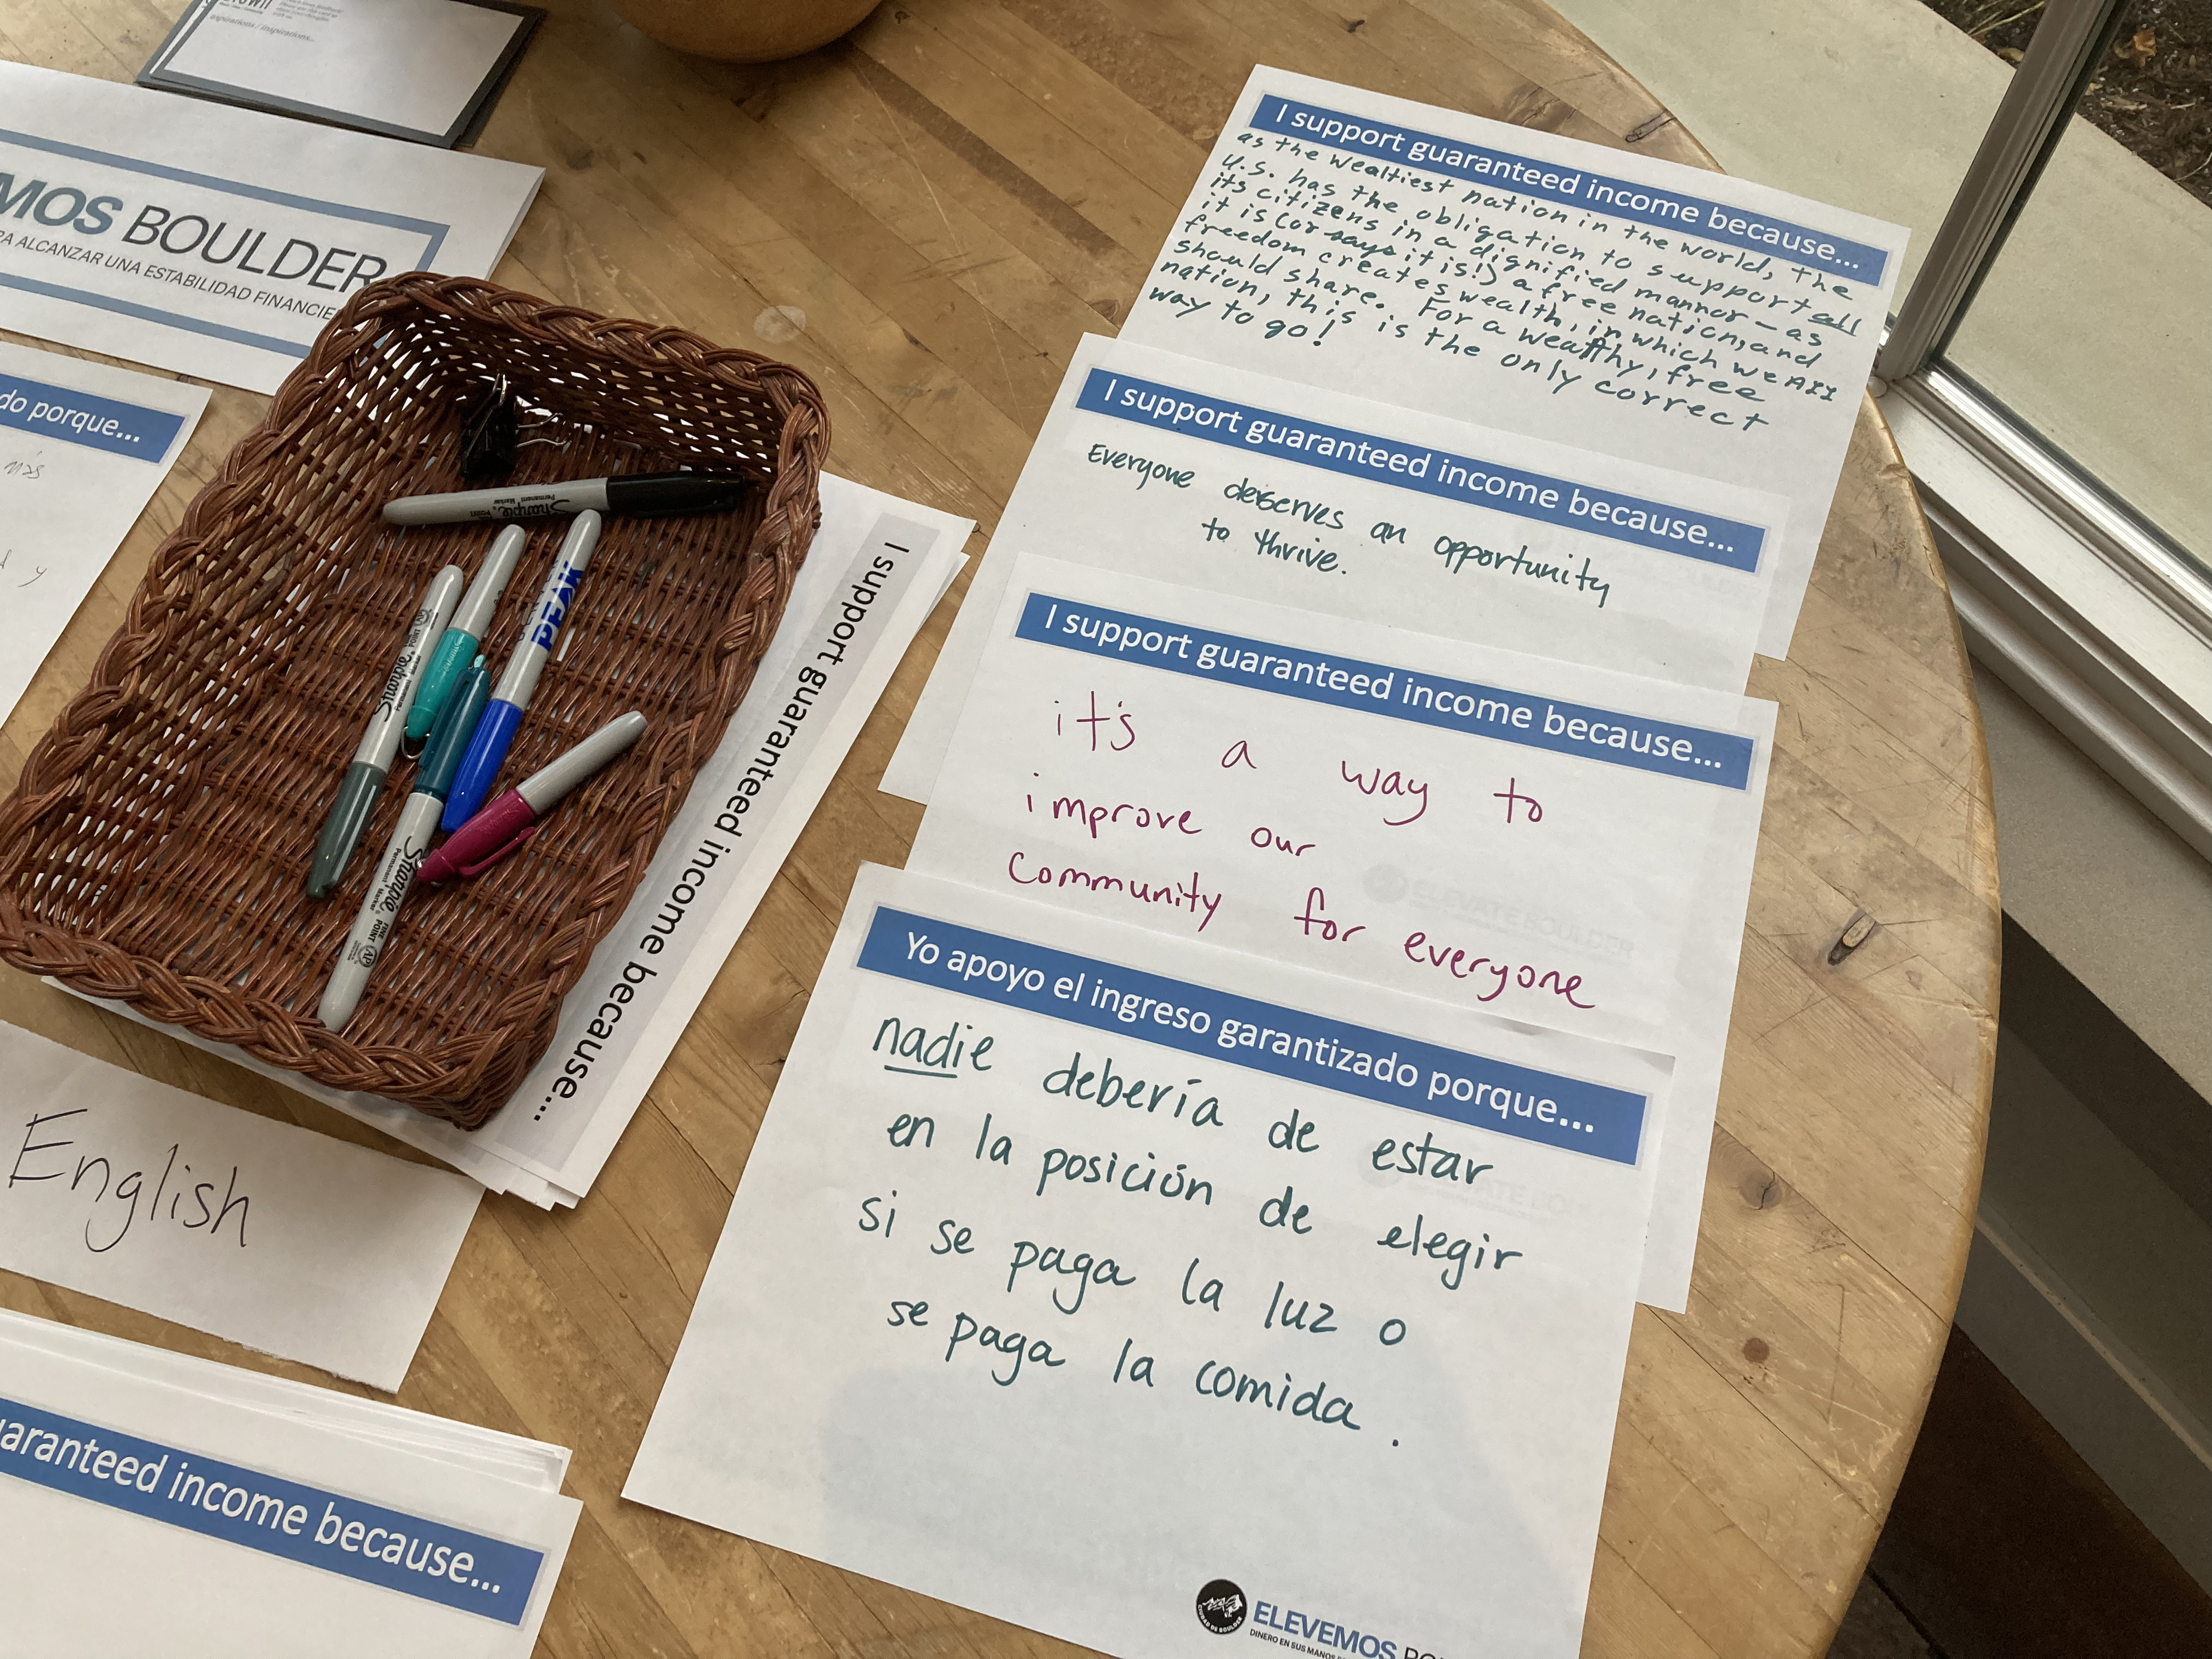 aspirations / inspirations...
MOS BOULDER
RA ALCANZAR UNA ESTABILIDAD FINANCIE
do porque...
más
y
Sharpie
Permanent Marker
Sharpie
PEAK
Sharpie
Permanent Marker
FINE POINT
AP
I support guaranteed income because...
English
uaranteed income because...
I support guaranteed income because...
as the wealtiest nation in the world, the
U.S. has the obligation to support all
its citizens in a dignified manner – as
it is (or says it is!) a free nation, and
freedom creates wealth, in which we ALL
should share. For a wealthy, free
nation, this is the only correct
way to go!
I support guaranteed income because...
Everyone deserves an opportunity
to thrive.
I support guaranteed income because...
it's a way to
improve our
community for everyone
ELEVATE BOULDER
Yo apoyo el ingreso garantizado porque...
nadie debería de estar
en la posición de elegir
si se paga la luz o
se paga la comida.
CIUDAD DE BOULDER
ELEVEMOS BOU
DINERO EN SUS MANOS